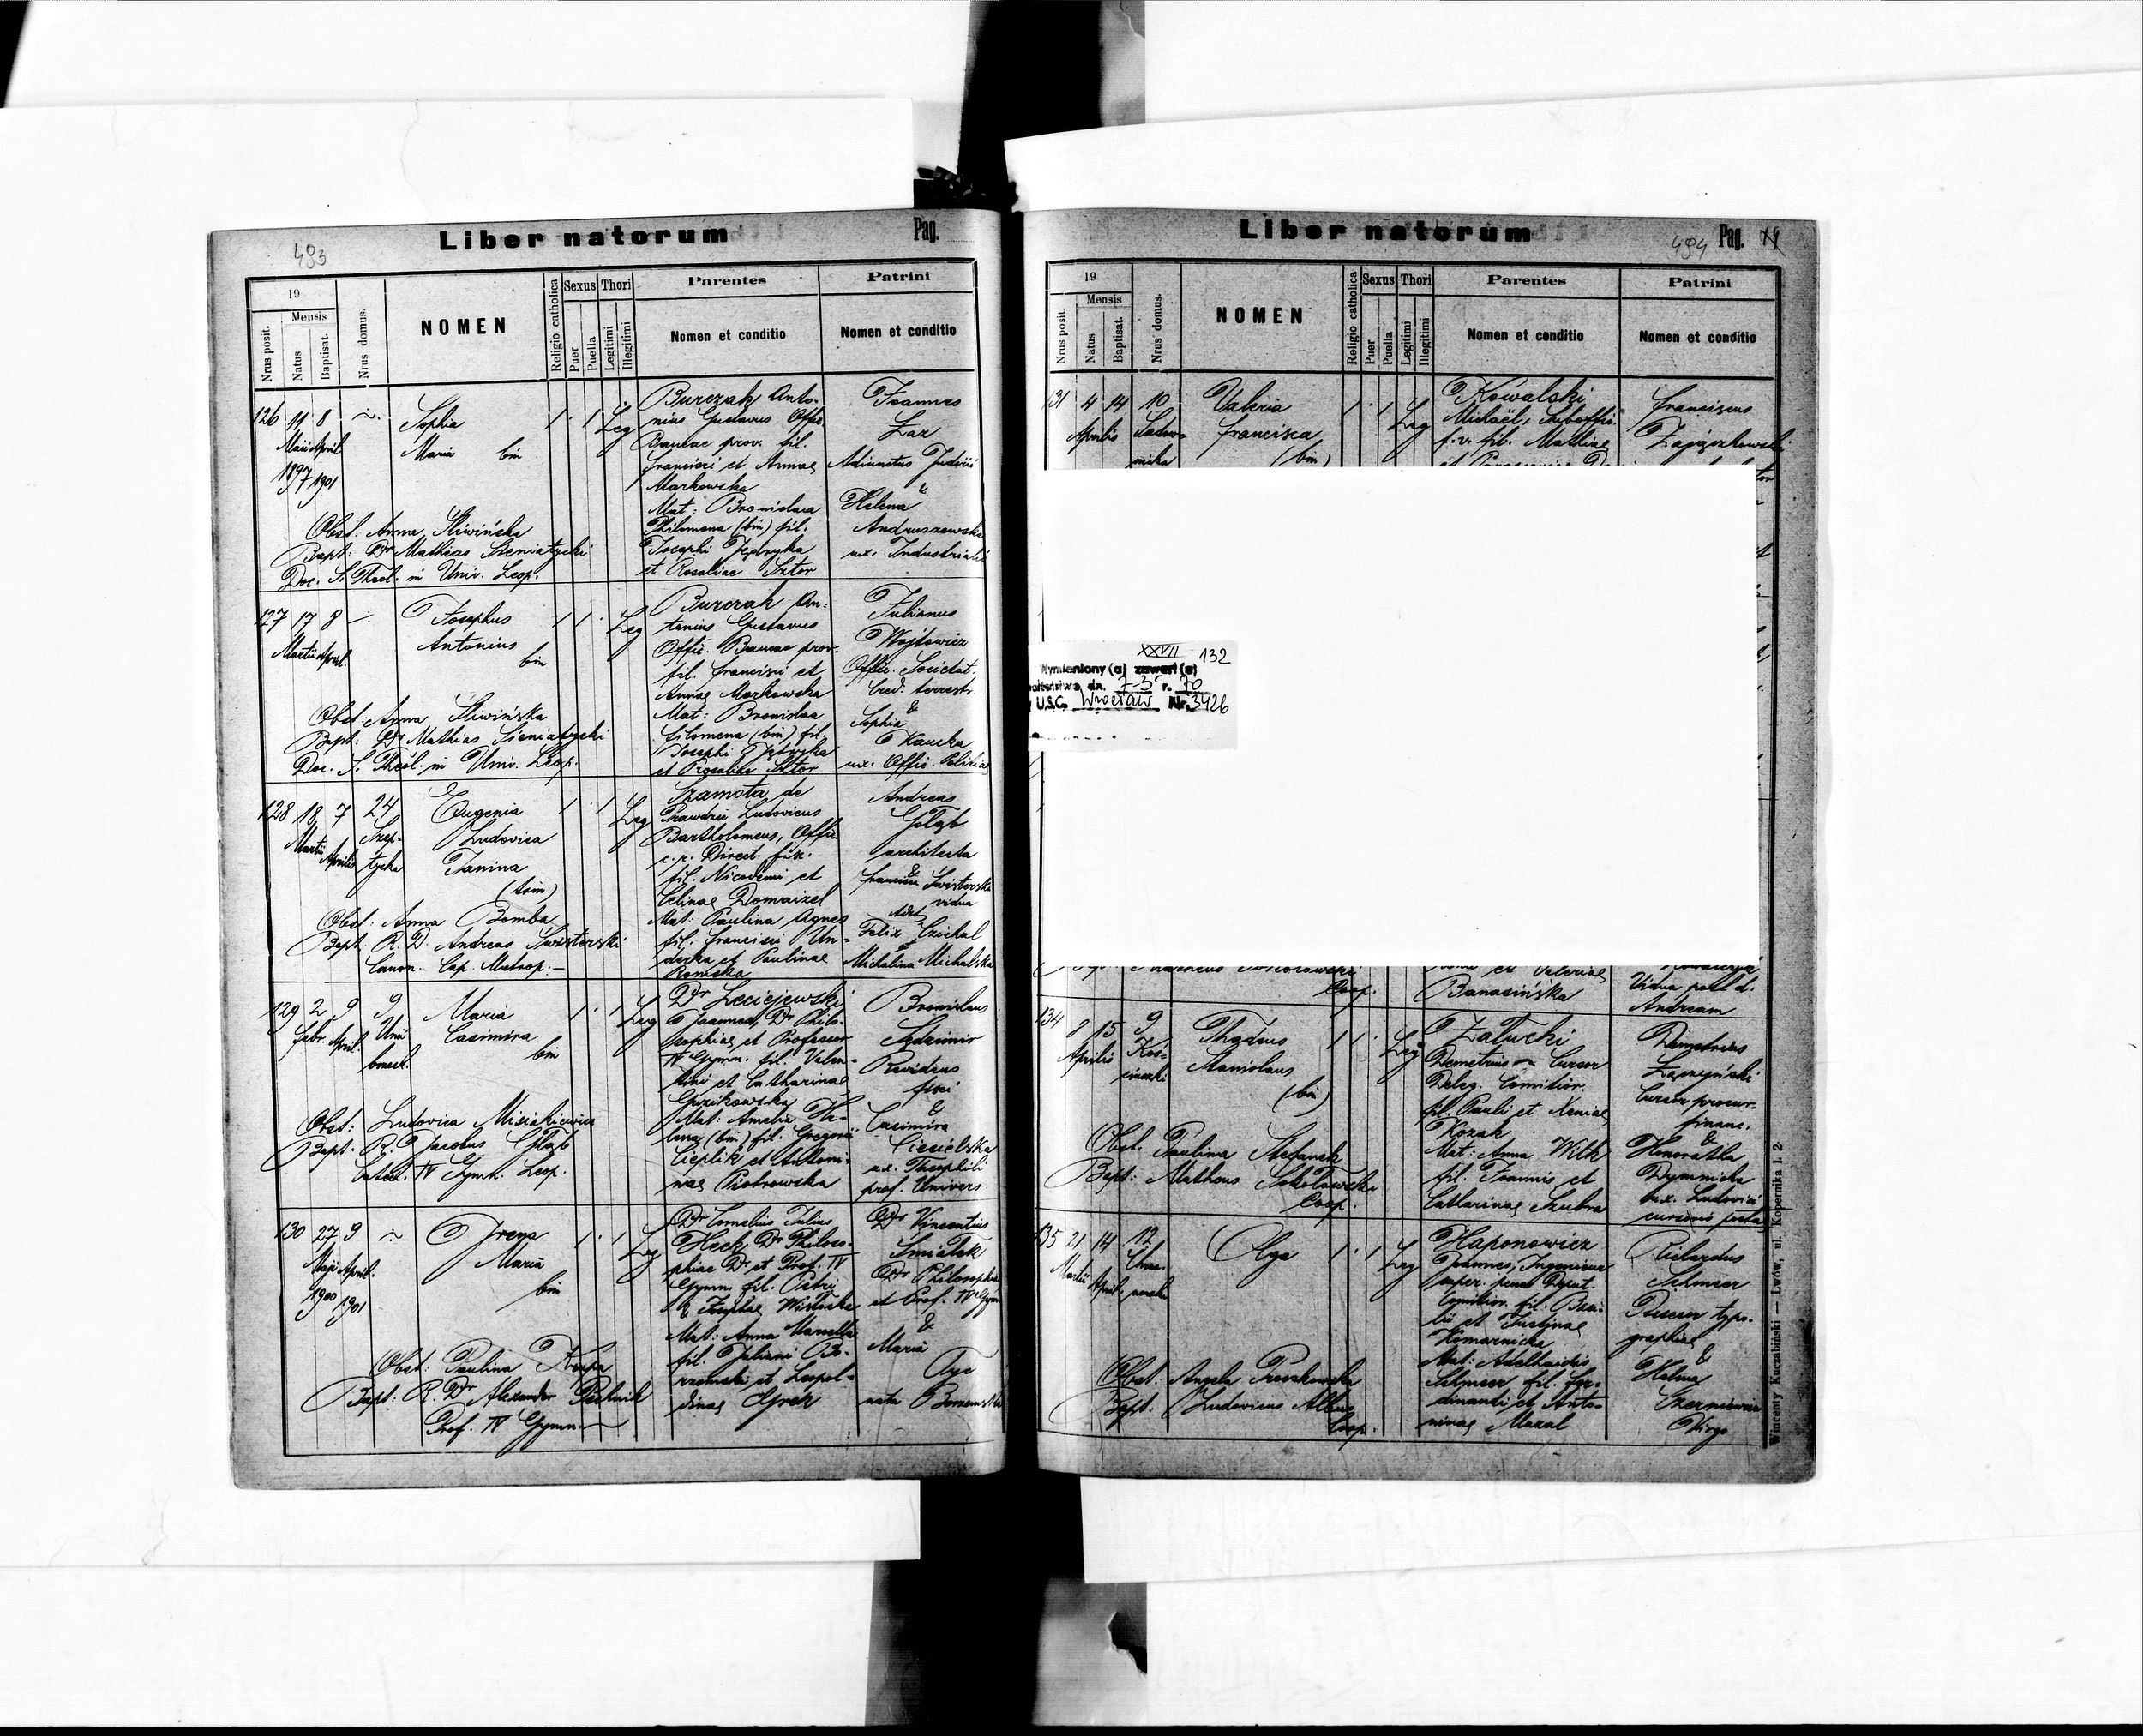 Liber natorum
Pag.
493
19
Mensis
Nrus posit.
Natus
Baptisat.
Nrus domus.
NOMEN
Religio catholica
Sexus
Puer
Puella
Thori
Legitimi
Illegitimi
Parentes
Nomen et conditio
Patrini
Nomen et conditio
126 11 8
Maii April
1897 1901
Sophia
Maria bin
Leg
Burczak Anto-
nius Gustavus Offic.
Bancae prov. fil.
Francisci et Annae
Markowska
Mat: Bronislava
Philomena (bin) fil.
Josephi
et Rosaliae Sztor
Joannes
Laz
Adiunctus Judicii
&
Helena
Andruszewska
ux. Industrialis
Obst. Anna Śliwińska
Bapt: Dr Mathias Sieniatycki
Doc. S. Theol. in Univ. Leop.
127 17 8
Martii April.
Josephus
Antonius
bin
Leg
Burczak An-
tonius Gustavus
Offic. Bancae prov.
fil. Francisci et
Annae Markowska
Mat: Bronislava
Filomena (bin) fil.
Josephi
et Rosaliae Sztor
Julianus
Wojtowicz
Offic. Societat.
Cred. terrestr.
&
Sophia
Kaucka
ux. Offic. Politiae
Obst: Anna Śliwińska
Bapt: Dr Mathias Sieniatycki
Doc. S. Theol. in Univ. Leop.
128 18 7 24
Martii Aprilis
Szep-
tycka
Eugenia
Ludovica
Janina
(trin)
Leg
Szamota de
Prawdzic Ludovicus
Bartholomeus, Offic.
c. r. Direct. fisc.
fil. Nicodemi et
Celinae Domaizel
Mat: Paulina Agnes
fil. Francisci Un-
derka et Paulinae
Romska
Andreas
Gołąb
architecta
&
Francisca Świsterska
vidua
Adst
Felix Czichal
Michalina Michalska
Obst. Anna Bomba
Bapt. R. D. Andreas Świsterski
Canon. Cap. Metrop.
129 2 9 9
Febr. April.
Maria
Casimira
bin
Leg
Dr Leciejewski
Joannes, Dr Philo-
sophiae et Professor
IV Gymn. fil. Valen-
tini et Catharinae
Gwizdkowska
Mat: Amelia He-
lena (bin) fil. Gregorii
Cieplik et Antoni-
nae Piotrowska
Bronislaus
Sędzimir
Revidens
fisci
&
Casimira
Ciesielska
ux. Theophili
prof. Univers.
Obst: Ludovica Misiakiewicz
Bapt. R. D. Jacobus Głąb
Catech. IV Gymn. Leop.
130 27 9
Maji April.
1900 1901
Irena
Maria
bin
Leg
Dr Cornelius Julius
Heck Dr Philoso-
phiae Dr et Prof. IV
Gymn. fil. Petri
et Sophiae Wisłocka
Mat: Anna Marcella
fil. Juliani Bo-
rzemski et Leopol-
dinae
Dr Vincentius
Śmiałek
Dr Philosophiae
et Prof. IV Gymn
&
Maria
Tyc
nata
Obst: Paulina Krupa
Bapt: R. Dr Alexander Pechnik
Prof. IV Gymn.
Liber natorum
494 Pag.
19
Mensis
Nrus posit.
Natus
Baptisat.
Nrus domus.
NOMEN
Religio catholica
Sexus
Puer
Puella
Thori
Legitimi
Illegitimi
Parentes
Nomen et conditio
Patrini
Nomen et conditio
131 4 14 10
Aprilis
Sadow-
nicka
Valeria
Francisca
(bin)
Leg
Kowalski
Michaël, Suboffic.
f. v. fil. Mathiae
Franciscus
Zajączkowski
XXVII 132
Wymieniony (a) zawarł (a)
małżeństwo dn. 7-3 r. 70
U.S.C. Wrocław Nr. 3426
Coop.
et Valeriae
Banasińska
Vidua post d.
Andream
134 8 15 9
Aprilis
Koś-
ciuszki
Thadeus
Stanislaus
(bin)
Leg
Załucki
Demetrius Cursor
Deleg. Comitior.
fil. Pauli et Xeniae
Kozak
Mat: Anna Wilk
fil. Joannis et
Catharinae Szubra
Demetrius
Łapczyński
Cursor procur.
financ.
&
Honoratha
Dymnicka
ux. Ludovici
cursoris postal
Obst. Paulina Stefanek
Bapt: Matheus Sokołowski
Coop.
135 21 14 12
Martii April.
Olga
Leg
Haponowicz
Joannes, Ingenieur
super. penes Deput.
Comitior. fil. Basi-
lii et Justynae
Komarnicka
Mat: Adelhaidis
Schmeer fil. Fer-
dinandi et Anto-
ninae Mazal
Richardus
Schmeer
typo-
graphiae
&
Helena
Virgo
Obst. Angela Pruszkowska
Bapt. Ludovicus Albus
Coop.
Wincenty Kuczabiński — Lwów, ul. Kopernika l. 2.